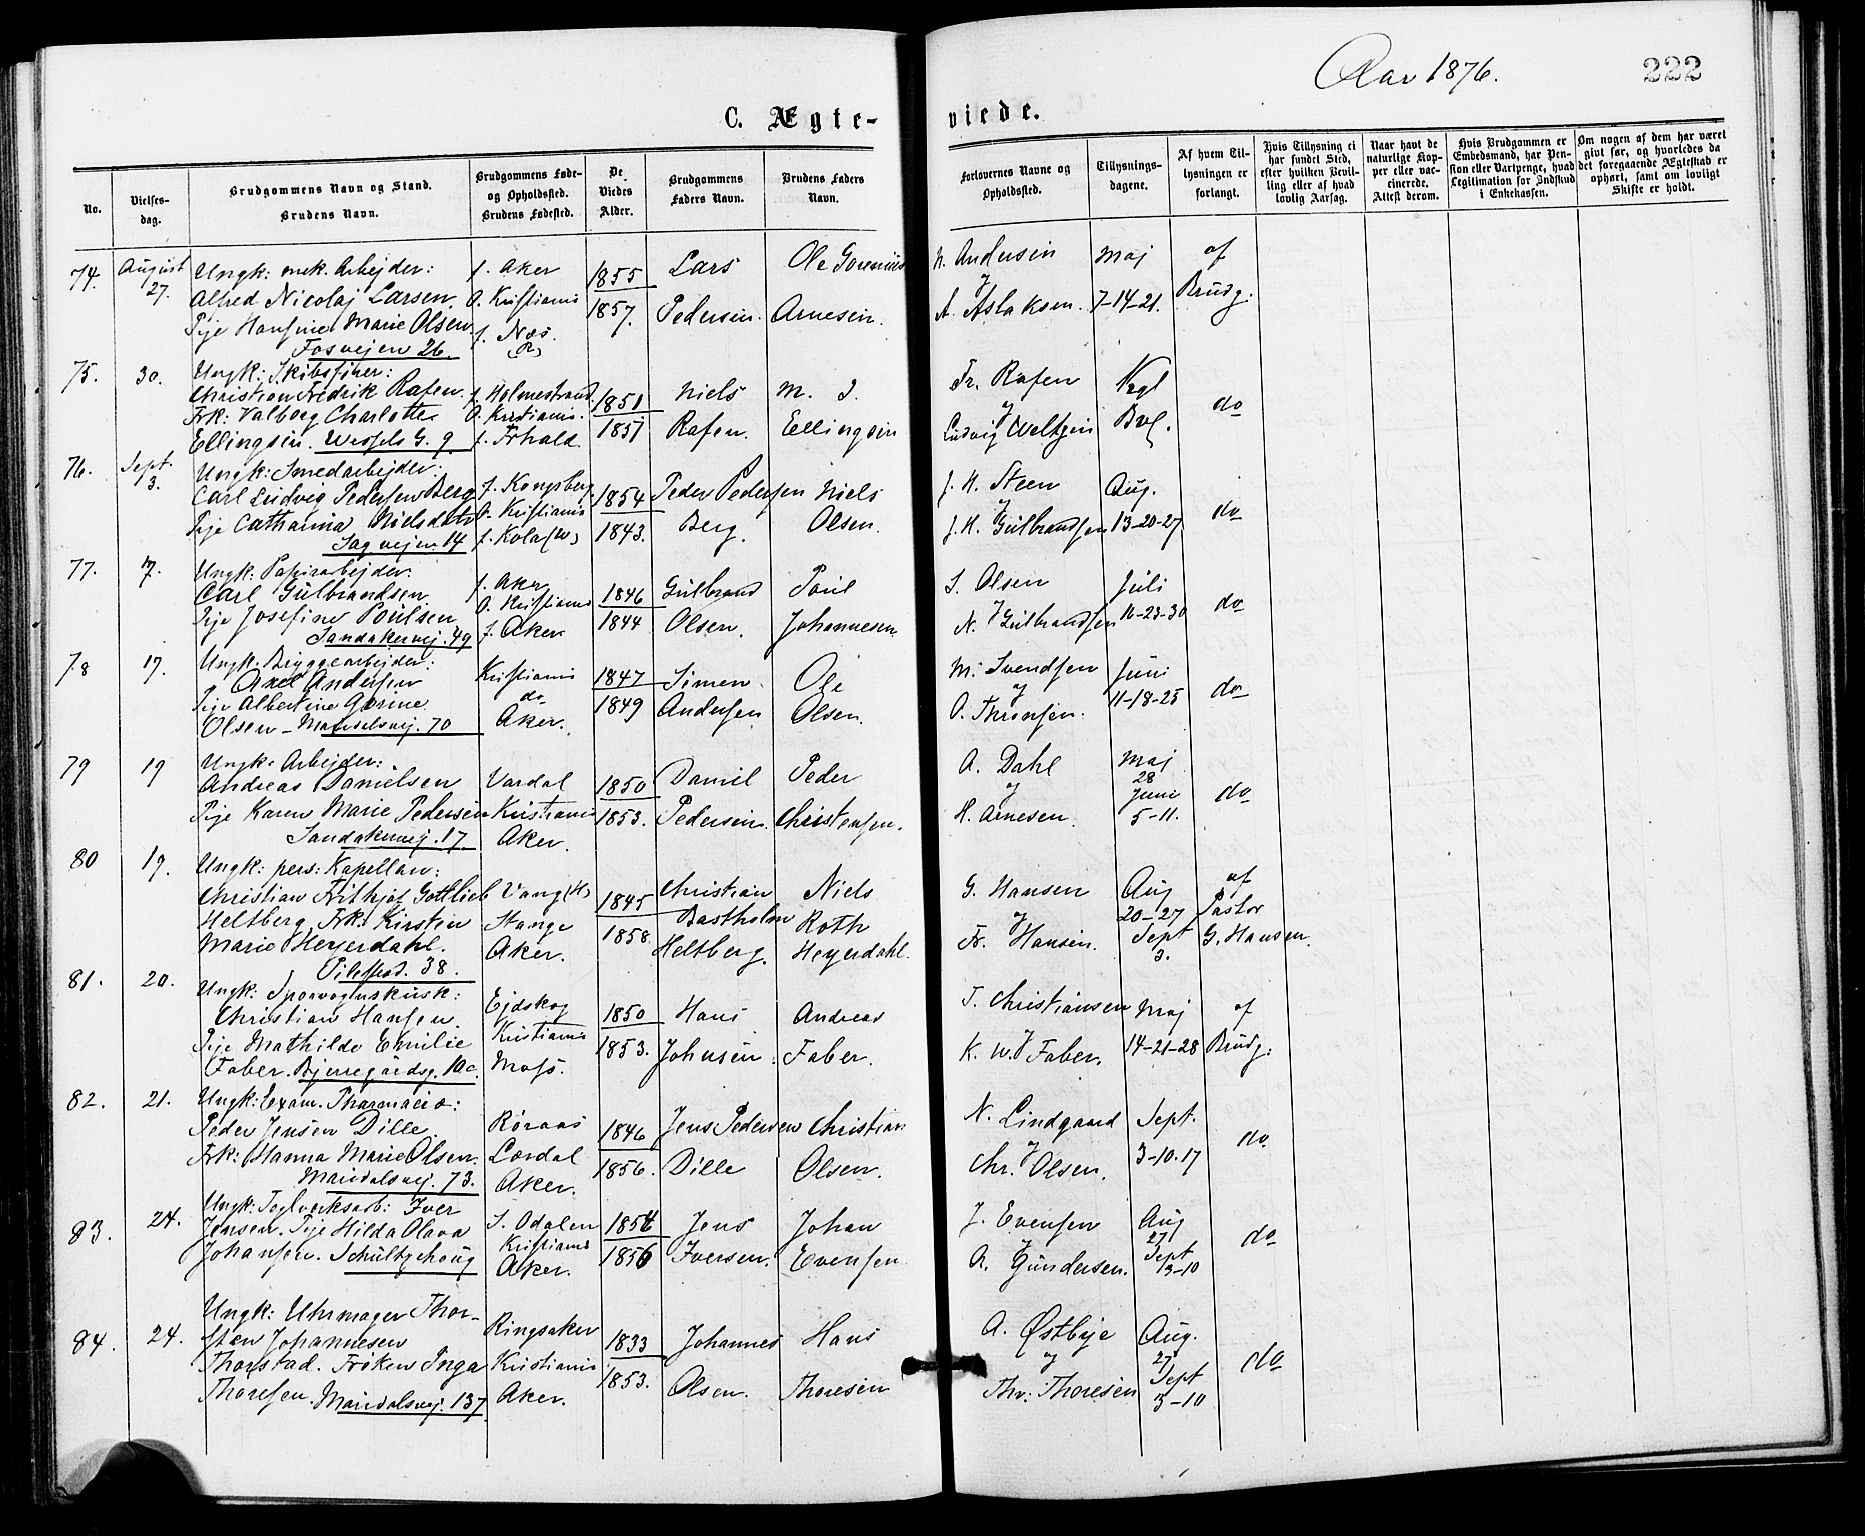 Aar 1876.
222
C. Ægte-
viede.
No.
Vielses-
dag.
Brudgommens Navn og Stand.
Brudens Navn.
Brudgommens Føde-
og Opholdssted.
Brudens Fødested.
De
Viedes
Alder.
Brudgommens
Faders Navn.
Brudens Faders
Navn.
Forlovernes Navne og
Opholdssted.
Tillysnings-
dagene.
Af hvem Til-
lysningen er
forlangt.
Hvis Tillysning ei
har fundet Sted,
efter hvilken Bevil-
ling eller af hvad
lovlig Aarsag.
Naar havt de
naturlige Kop-
per eller vac-
cinerede.
Attest derom.
Hvis Brudgommen er
Embedsmand, har Pen-
sion eller Vartpenge, hvad
Legitimation for Indskud
i Enkekassen.
Om nogen af dem har været
givt før, og hvorledes da
det foregaaende Ægteskab er
ophørt, samt om lovligt
Skifte er holdt.
74. August 27.
Ungk: mek. Arbejder:
Alfred Nicolaj Larsen.
Pige Hansine Marie Olsen
Fosvejen 26.
f. Aker
O. Kristiania
f. Næs.
(R)
1855
1857.
Lars
Pedersen.
Ole
Arnesen.
N. Andersen
A. Aslaksen.
Maj
7-14-21.
af
Brudg:
75. 30.
Ungk: Skibsfører:
Christian Fredrik Rafen.
Frk: Valborg Charlotte
Ellingsen. Wessels G. 9
f. Holmestrand
O. Kristiania.
f. Frhald
1851
1851
Niels
Rafen.
M. J.
Ellingsen
Fr. Rafen
Ludvig
Kgl
Bvl.
do
76. Sept. 3.
Ungk: Smedarbejder:
Carl Ludvig Pedersen Berg
Pige Catharina Nielsdatr
Sagvejen 14
f. Kongsberg
O. Kristiania
f. Kola
1854
1843.
Peder Pedersen
Berg.
Niels
Olsen.
J. H. Steen
J. H. Gulbrandsen
Aug.
13-20-27
do
77. 17.
Ungk: Papirarbejder:
Carl Gulbrandsen
Pige Josefine Poulsen
Sandakervej. 49
f. Aker
O. Kristiania
f. Aker
1846
1844
Gulbrand
Olsen.
Poul
Johannesen
S. Olsen
N. Gulbrandsen
Juli
16-23-30
do
78 17.
Ungk. Bryggearbejder:
Axel Andersen
Pige Albertine Gorine
Olsen - Maridalsvej. 70
Kristiania
do
Aker.
1847
1849
Simen
Andersen
Ole
Olsen.
M. Svendsen
O. Thronsen.
Juni
11-18-25
do
79 19
Ungk: Arbejder:
Andreas Danielsen
Pige Karen Marie Pedersen
Sandakervej. 17.
Vardal
Kristiania
Aker.
1850
1853.
Daniel
Pedersen.
Peder
Christensen.
A. Dahl
H. Arnesen.
Maj
28
Juni
5-11.
do
80 19.
Ungk: pers: Kapellan:
Christian Frithjof Gottlieb
Heltberg. Frk: Kirsten
Marie Heyerdahl.
Pilestræd. 38.
Vang (H)
Stange
Aker.
1845
1858.
Christian
Bastholm
Heltberg.
Niels
Roth
Heyerdahl.
G. Hansen
Fr. Hansen.
Aug
20-27
Sept
3.
af
Pastor
G. Hansen.
81. 20.
Ungk: Sporvognskusk:
Christian Hansen.
Pige Mathilde Emilie
Faber. Bjerregaardsg. 10c.
Ejdskog
Kristiania
Moss.
1850
1853.
Hans
Johnsen.
Andreas
Faber.
T. Christiansen
K. W. Faber.
Maj
14-21-28
af
Brudg:
82. 21.
Ungk: Exam. Pharmacie:
Peder Jensen Dille.
Frk: Hanna Marie Olsen.
Maridalsvej. 73.
Røraas
Lærdal
Aker.
1846
1856.
Jens Pedersen
Dille
Christian
Olsen.
N. Lindgaard
Chr. Olsen.
Sept.
3-10-17
do
83. 24.
Ungk: Teglverksarb: Iver
Jensen. Pige Hilda Olava
Johansen. Schultzehaug
S. Odalen
Kristiania
Aker.
1854
1856
Jens
Iversen.
Johan
Evensen
J. Evensen
A. Gundersen.
Aug
27
Sept
3-10
do
84. 24.
Ungk: Uhrmager Thor-
sten Johannesen
Thorstad. Frøken Inga
Thoresen. Maridalsvej. 137
Ringsaker
Kristiania
Aker.
1833
1853.
Johannes
Olsen.
Hans
Thoresen
A. Østbye
Thv. Thoresen
Aug.
27
Sept
3-10
do